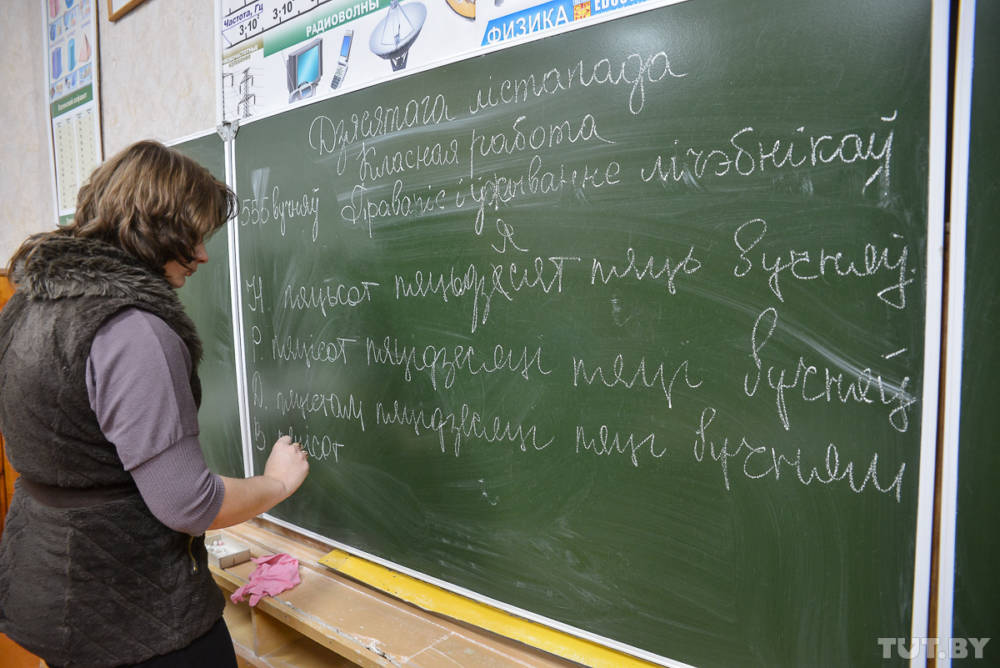 Частота, Гц
3·10³
3·10
РАДИОВОЛНЫ
ФИЗИКА
Дзясятага лістапада
Класная работа
Правапіс і ўжыванне лічэбнікаў
555 вучняў
Я
Н. пяцьсот пяцьдзесят пяць вучняў.
Р. пяцісот пяцідзесяці пяці вучняў
Д. пяцістам пяцідзесяці пяці вучням
В. пяцісот
TUT.BY